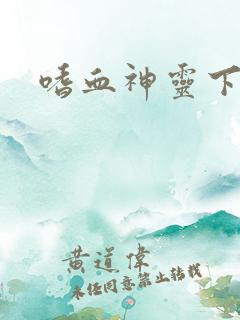 嗜血神靈下
黄道偉
未經同意禁止轉載